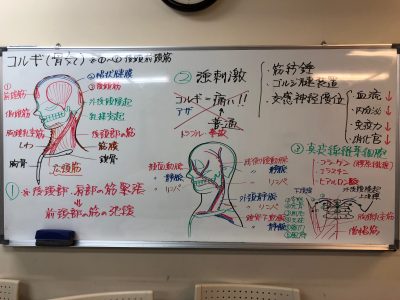 コルギ(骨気)
①→② 後頭前頭筋
② 帽状腱膜
① 前頭筋
③ 後頭筋
側頭筋
外後頭隆起
乳様突起
胸鎖乳突筋
後頭部の筋
しわ
筋膜
胸骨
鎖骨
広頚筋
① 後頭部・肩部の筋緊張
前頭部の筋の弛緩
② 強刺激
コルギ=痛い!!
アザ
普通
トラブル・事故
顔面動脈
〃 静脈
〃 リンパ
浅側頭動脈
〃 静脈
〃 リンパ
外頸静脈
〃 リンパ
鎖骨下動脈
〃 静脈
・筋紡錘
・ゴルジ腱装置
・交感神経優位
血流↓
内分泌↓
免疫力↓
消化管↓
③
・コラーゲン
・エラスチン
・ヒアルロン酸
外後頭隆起
上項線
下項線
胸鎖乳突筋
僧帽筋